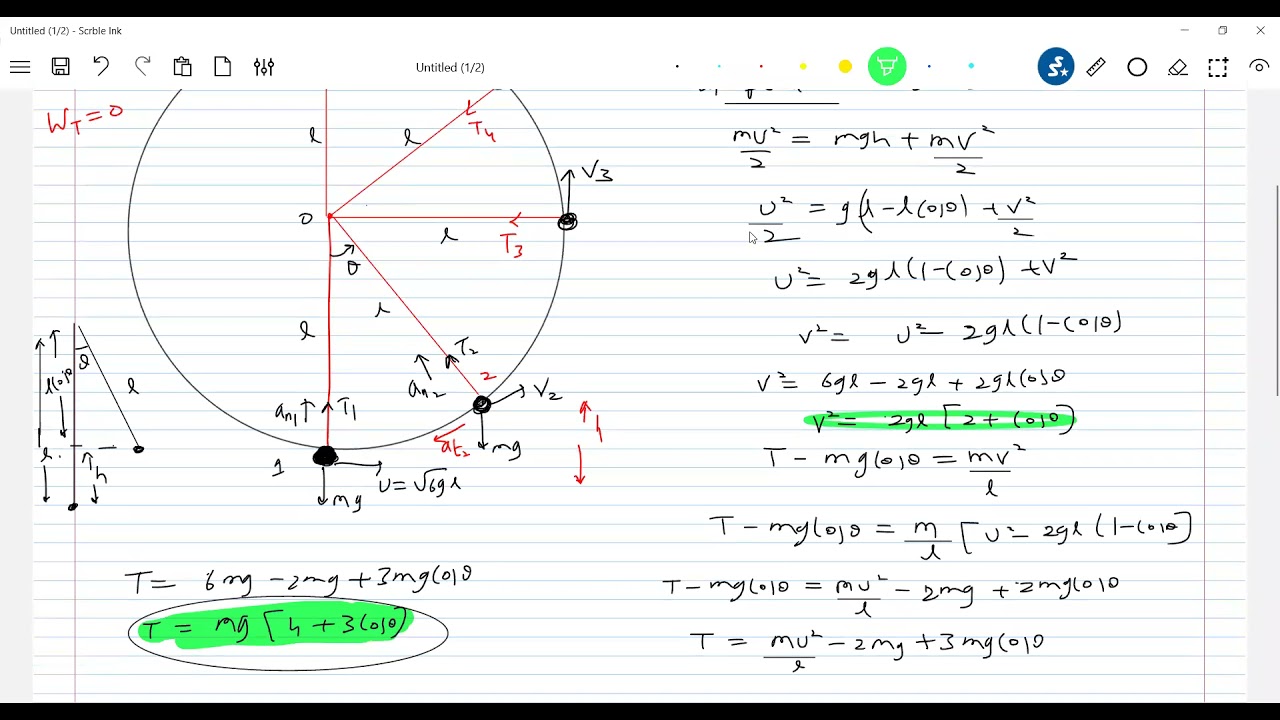 Untitled (1/2) - Scrble Ink
Untitled (1/2)
W_T = 0
l
l
T₄
V₃
O
l
T₃
θ
l
l
T₂
a_n₂
2
V₂
a_n₁
T₁
a_t₂
mg
h
1
u = √6gl
mg
θ
lcosθ
l
l
h
T = 6mg - 2mg + 3mgcosθ
T = mg [4 + 3cosθ]
mu²/2 = mgh + mv²/2
u²/2 = g(l - lcosθ) + v²/2
u² = 2gl(1-cosθ) + v²
v² = u² - 2gl(1-cosθ)
v² = 6gl - 2gl + 2glcosθ
v² = 2gl [2 + cosθ]
T - mgcosθ = mv²/l
T - mgcosθ = m/l [u² - 2gl (1-cosθ]
T - mgcosθ = mu²/l - 2mg + 2mgcosθ
T = mu²/l - 2mg + 3mgcosθ